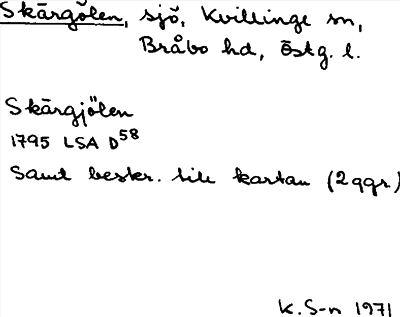 Skärgölen, sjö, Kvillinge sn,
Bråbo hd, Östg. l.
Skärgjölen
1795 LSA D58
Samt beskr. till kartan (2 ggr)
K. S-n 1971